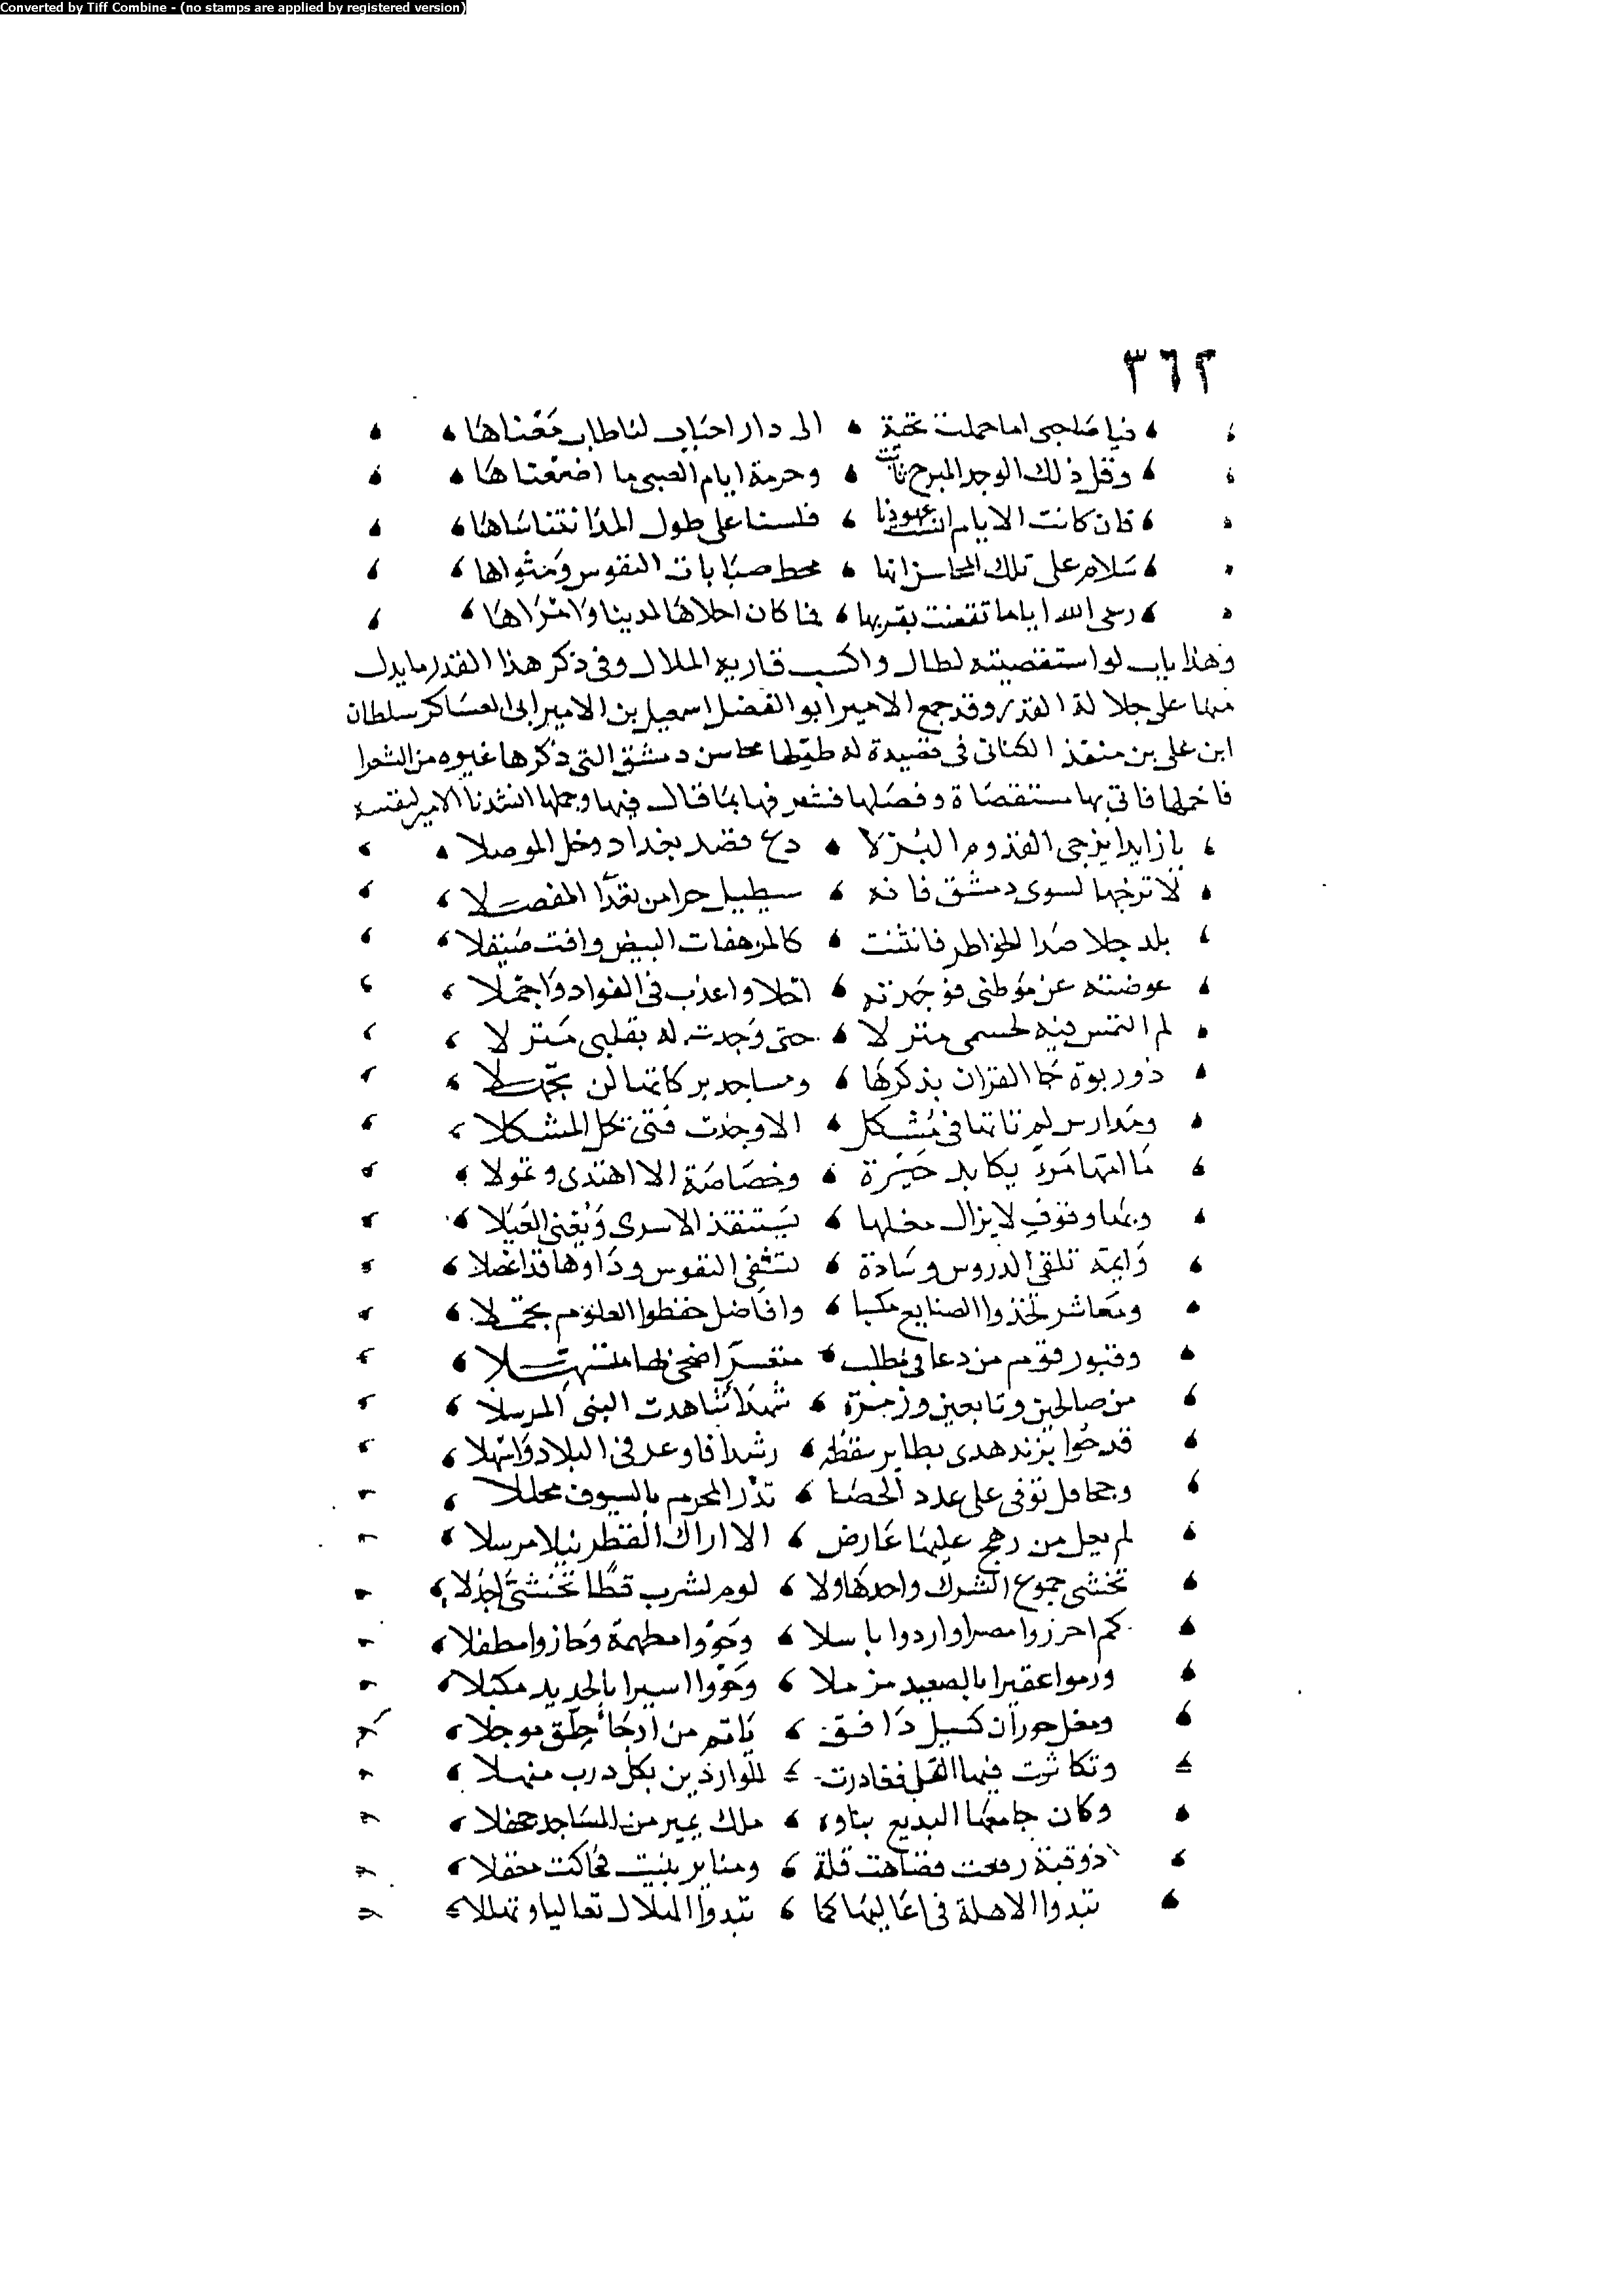 Converted by Tiff Combine - (no stamps are applied by registered version)
٣٦٢
فيا صاحبى اما حملت تحية الى دار احباب لنا طاب مغناها
وقل ذلك الوجد المبرح ثابت وحرمة ايام الصبى ما اضعناها
فان كانت الايام انست عهودنا فلسنا على طول المدا نتناساها
سلام على تلك المحاسن انها محط صبابات النفوس ومثواها
رعى الله اياما تقضت بقربها فما كان احلاها لدينا وامراها
وهذا باب لو استقصيته لطال واكسب قاريه الملال وفى ذكر هذا القدر ما يدل
منها على جلالة القدر وقد جمع الامير ابو الفضل اسمعيل بن الامير ابى العساكر سلطان
ابن على بن منقذ الكنانى فى قصيدة له طيلها محاسن دمشق التى ذكرها غيره من الشعرا
فاجملها فاتى بها مستقصاة وفصلها فشعر فيها بما قال فيها وجملها انشدنا الامير لنفسه
يا زايرا يزجى القدوم البزلا دع قصد بغداد وخل الموصلا
لا ترخها لسوى دمشق فانه سيطيل حزا من تعدا المفصلا
بلد جلا صدا الخواطر فانثنت كالمرهفات البيض وافت صيقلا
عوضته عن موطنى فوجدته احلا واعذب فى الفواد واجملا
لم التمس فيه لجسمى منزلا حتى وجدت له بقلبى منزلا
ذو ربوة جا القران بذكرها ومساجد بركاتها لن تجهلا
ومدارس لم تاتها فى مشكل الا وجدت فتى يحل المشكلا
ما امها مرء يكابد حيرة وخصاصة الا اهتدى وتمولا
وبها وقوف لا يزال مغلها يستنقذ الاسرى ويغنى العيلا
وايمة تلقى الدروس وسادة تشفى النفوس وداوها قد اعضلا
ومعاشر تخذوا الصنايع مكسبا وافاضل حفظوا العلوم تجملا
وقبور قوم من دعا فى مطلب متعسر اضحى بها متسهلا
من صالحين وتابعين وزمرة شهدا شاهدت النبى المرسلا
قدحوا بزند هدى بطاير سقطه رشدا فاوعد فى البلاد واشعلا
وجحافل توفى على عدد الحصا تذر المحرم بالسيوف محللا
لم يعل من رهج عليها عارض الا اراك القطر نبلا مرسلا
تخشى جموع الشرك واحدها ولا لوم لشرب قطا تخشى اجدلا
كم احرزوا مصرا واردوا باسلا وحووا مطهمة وحازوا مطفلا
ورموا عقيرا بالصعيد مزملا وحووا اسيرا بالحديد مكبلا
ومغل حوران كسيل دافق ياتم من ارجاء جلق موجلا
وتكاثرت فيها القنى فغادرت للواردين بكل درب منهلا
وكان جامعها البديع بناوه ملك يمير من المساجد جحفلا
ذو قبة رفعت فضاهت قلة ومنابر بنيت فحاكت معقلا
تبدوا الاهلة فى اعاليها كما تبدوا الهلال تعاليا وتهللا